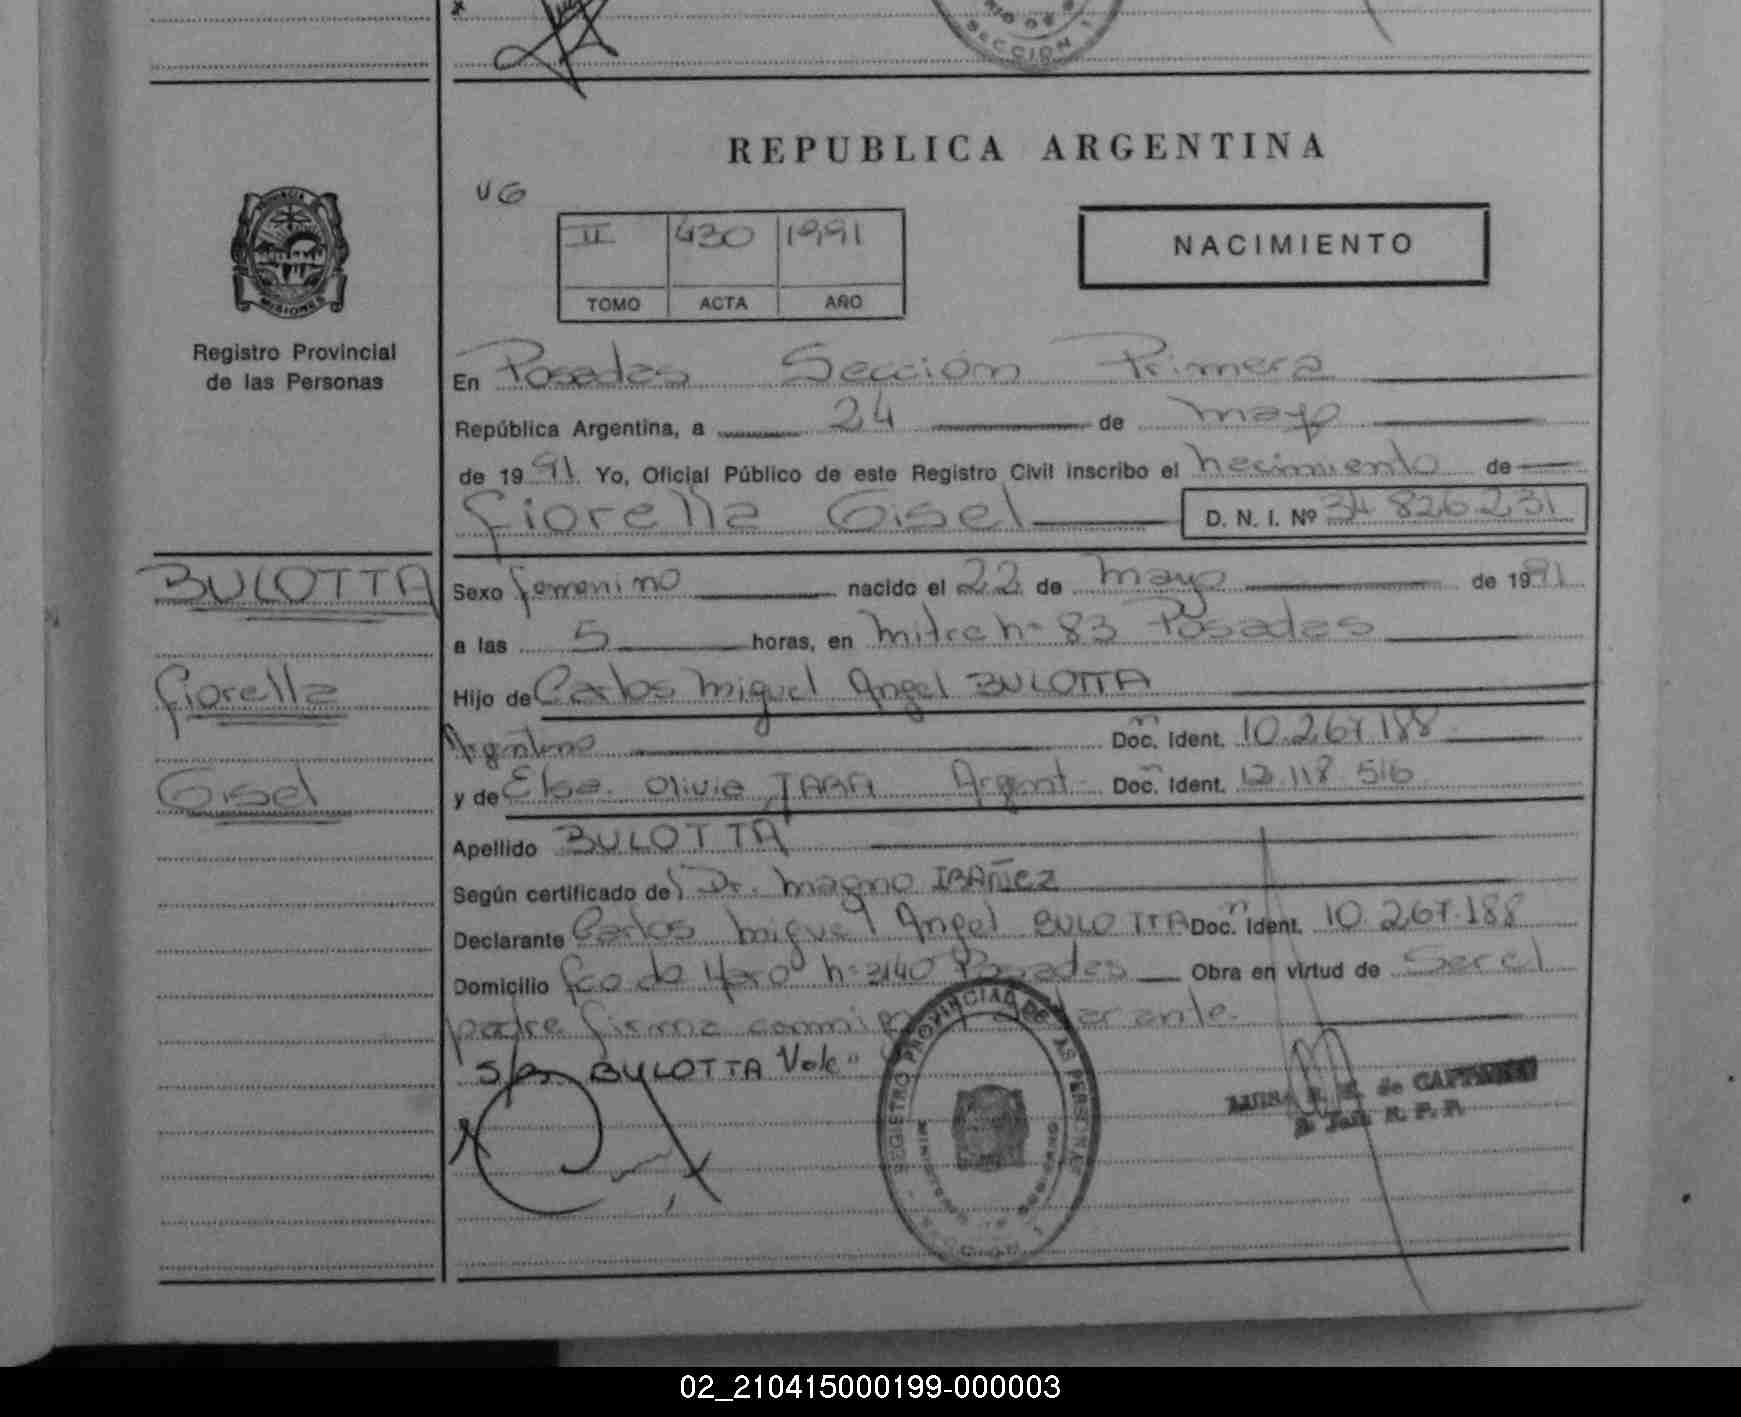 SECCION 1
REPUBLICA ARGENTINA
VG
II 430 1991
TOMO ACTA AÑO
NACIMIENTO
PROVINCIA
MISIONES
Registro Provincial
de las Personas
En Posadas Sección Primera
República Argentina, a 24 de mayo
de 1991 Yo, Oficial Público de este Registro Civil inscribo el necimiento de
Fiorella Gisel D. N. I. Nº 34 826.231
BULOTTA
Fiorella
Gisel
Sexo femenino nacido el 22 de mayo de 1991
a las 5 horas, en mitre nº 83 Posadas
Hijo de Carlos Miguel Angel BULOTTA
Argentino Doc. Ident. 10.267.188
y de Elsa Olivia JARA Argent. Doc. Ident. 12.118.516
Apellido BULOTTA
Según certificado del Dr. Magno IBAÑEZ
Declarante Carlos Miguel Angel BULOTTA Doc. Ident. 10.267.188
Domicilio Fco de Haro nº 2140 Posadas Obra en virtud de Ser el
padre firma conmigo el declarante.
S/R BULOTTA "Vale"
REGISTRO PROVINCIAL DE LAS PERSONAS
MINISTERIO DE GOBIERNO
SECCION 1
de
R. P. P.
02_210415000199-000003